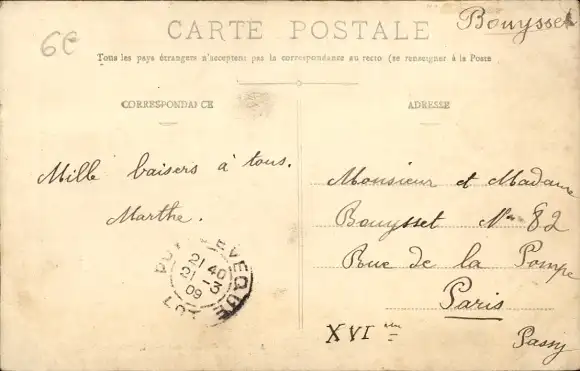 6€
Bouysset
CARTE POSTALE
Tous les pays étrangers n'acceptent pas la correspondance au recto (se renseigner à la Poste
CORRESPONDANCE
ADRESSE
Mille baisers à tous.
Marthe.
Monsieur et Madame
Bouysset N° 82
Rue de la Pompe
Paris
XVI eme
Passy
PUY L'EVEQUE
21 40
21 - 3
09
LOT